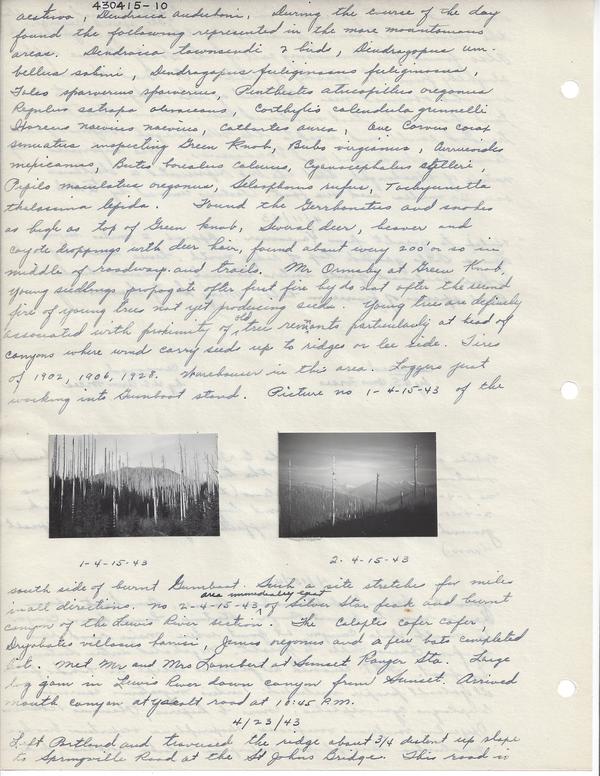 430415-10
aestiva, Dendroica auduboni. During the curse of the day
found the following represented in the more mountainous
areas. Dendroica townsendi 2 birds, Dendragopus um-
bellus sabini, Dendragapus fuliginosus fuliginosus,
Falco sparverius sparverius, Penthestes atricapillus oregonus
Regulus satrapa olivaceus, Corthylio calendula grinnelli
Ixoreus naevius naevius, Cathartes aurea, One Corvus corax
sinuatus inspecting Green Knob, Bubo virginus,
mexicanus, Buteo borealis calurus, Cyanocephalus stelleri,
Pipilo maculatus oregonus, Selasphorus rufus, Tachycineta
thalassina lepida. Found the Gerrhonatus and snakes
as high as top of Green Knob, Several deer, beaver and
coyote droppings with deer hair, found about every 200' or so in
middle of roadways and trails. Mr Ormsby at Green Knob,
young seedlings propagate after first fire by do not after the second
fire of young trees not yet producing seeds. Young trees are definitely
associated with proximity of old tree remnants particularly at head of
canyons where wind carry seeds up to ridges or lee side. Fires
of 1902, 1906, 1928. in this area. Loggers just
working into Gumboot stand. Picture no 1-4-15-43 of the
1-4-15-43
2-4-15-43
south side of burnt Gumboot. Such a site stretches for miles
in all directions. no 2-4-15-43 area immediately east of Silver Star peak and burnt
canyon of the Lewis River section. The Colaptes cafer cafer,
Dryobates villosus harrisi, Junco oregonus and a few bats completed
list. Met Mr and Mrs Lambert at Sunset Ranger Sta. Large
log jam in Lewis River down canyon from Sunset. Arrived
mouth canyon at yacolt road at 10:45 P.M.
4/23/43
Left Portland and traversed the ridge about 3/4 distant up slope
to Springville Road at the St Johns Bridge. This road is